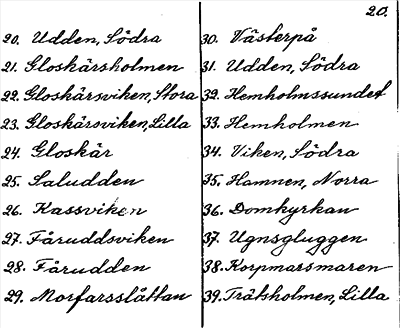 20.
20. Udden, Södra
21. Gloskärsholmen
22. Gloskärsviken, Stora
23. Gloskärsviken, Lilla
24. Gloskär
25. Saludden
26. Kassviken
27. Fåruddsviken
28. Fårudden
29. Morfarsslåttan
30. Västerpå
31. Udden, Södra
32. Hemholmssundet
33. Hemholmen
34. Viken, Södra
35. Hamnen, Norra
36. Domkyrkan
37. Ugnsgluggen
38. Korpmarsmaren
39. Trätsholmen, Lilla